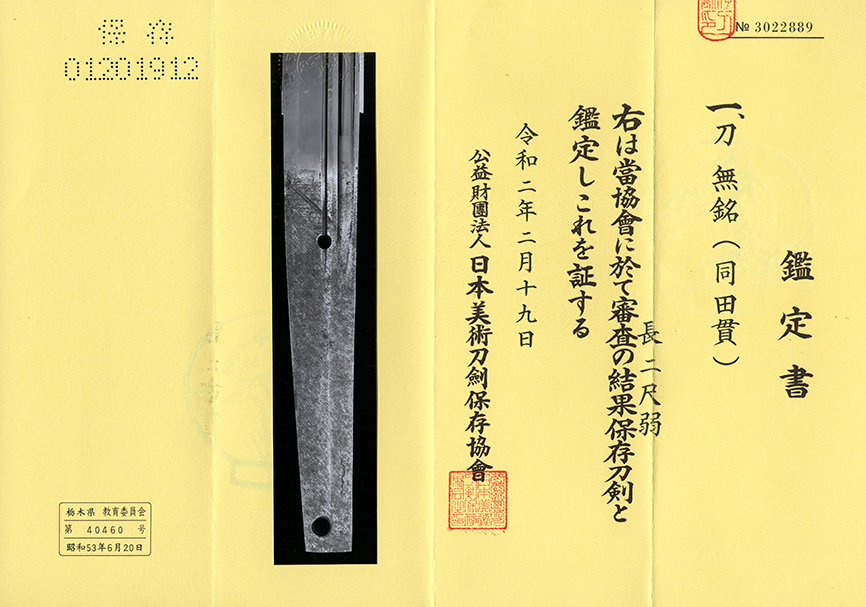 № 3022889
鑑定書
一、刀 無銘(同田貫)
長二尺弱
右は當協會に於て審査の結果保存刀劍と
鑑定しこれを証する
令和二年二月十九日
公益財團法人 日本美術刀劍保存協會
保存
01201912
栃木県 教育委員会
第 40460 号
昭和53年6月20日